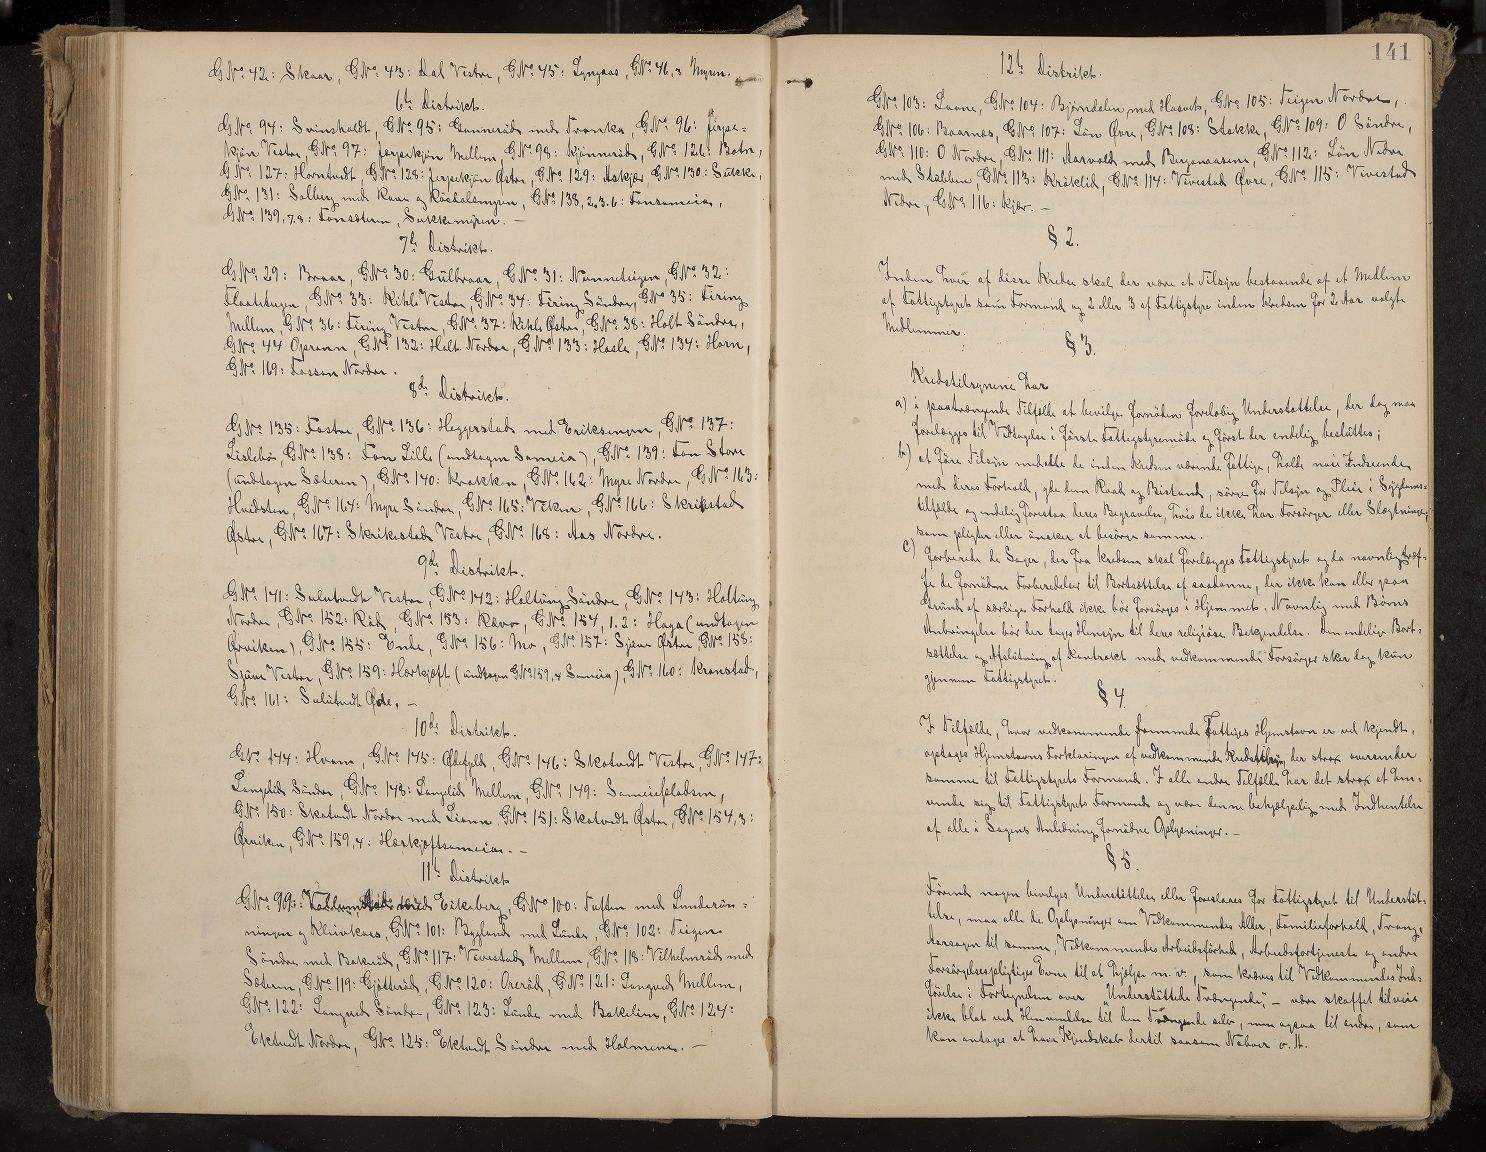 G№ 42: Skaar, G№ 43: Dal Vestre, G№ 45: Lyngaas, G№ 46,3 Myren.
6te Distrikt.
G№ 94: Svinsholdt, G№ 95: Gunnerød med Franka, G№ 96: Jerpe-
kjøn Vestre, G№ 97: Jerpekjøn Mellem, G№ 98: Kjønnerød, G№ 126: Botne,
G№ 127: Horntvedt, G№ 128: Jerpekjøn Østre, G№ 129: Askjær, G№ 130: Sukke,
G№ 131: Solberg med Ruen og Røedalsmyren, G№ 138, 2.3.6: Fonsameiar,
G№ 139,7,8: Fonsæteren, Sukkemyren. —
7de Distrikt.
G№ 29: Braar, G№ 30: Gulbraar, G№ 31: Nonneteigen, G№ 32:
Flaathagen, G№ 33: Kihle Vestre, G№ 34: Firing Søndre, G№ 35: Firing
Mellem, G№ 36: Firing Vestre, G№ 37: Kihle Østre, G№ 38: Holt Søndre,
G№ 44 Gjerann, G№ 132: Holt Nordre, G№ 133: Hasle, G№ 134: Horn,
G№ 169: Fossan Nordre.
8de Distrikt.
G№ 135: Fostre, G№ 136: Heggerstad med Eriksengen, G№ 137:
Lislebø, G№ 138: Fon Lille (undtagen Sameia), G№ 139: Fon Store
(undtagen Sæteren), G№ 140: Krakken, G№ 162: Myre Nordre, G№ 163:
Hvidsten, G№ 164: Myre Søndre, G№ 165: Viken, G№ 166: Skrikestad
Østre, G№ 167: Skrikestad Vestre, G№ 168: Aas Nordre.
9de Distrikt.
G№ 141: Sulutvedt Vestre, G№ 142: Holtung Søndre, G№ 143: Holtung
Nordre, G№ 152: Röd, G№ 153: Rævo, G№ 154, 1.2: Haga (undtagen
Ørviken), G№ 155: Ende, G№ 156: Mo, G№ 157: Sjæve Østre, G№ 158:
Sjæve Vestre, G№ 159: Hærkjøft (undtagen G№ 159,4 Sameia), G№ 160: Kronstad,
G№ 161: Sulutvedt Øde. —
10de Distrikt.
G№ 144: Hvam, G№ 145: Ødefjeld, G№ 146: Skotvedt Vestre, G№ 147:
Langelid Søndre, G№ 148: Langelid Mellem, G№ 149: Sameiepladsen,
G№ 150: Skotvedt Nordre med Lianne, G№ 151: Skotvedt Østre, G№ 154,3:
Ørviken, G№ 159,4: Hærkjøftsameiar. —
11te Distrikt
G№ 99: med Eikeberg, G№ 100: Tuften med Lunderøn-
ningen og Kleivkaas, G№ 101: Bygland med Lunde, G№ 102: Teigen
Søndre med Bakerød, G№ 117: Vivestad Mellem, G№ 118: Vilhelmsrød med
Sætern, G№ 119: Gjötterød, G№ 120: Orerød, G№ 121: Langved Mellem,
G№ 122: Langved Søndre, G№ 123: Lunde med Bakelien, G№ 124:
Ektvedt Nordre, G№ 125: Ektvedt Søndre med Holmene. —
141
12te Distrikt.
G№ 103: Lavne, G№ 104: Bjørndalen med Hasvet, G№ 105: Teigen Nordre,
G№ 106: Baarnes, G№ 107: Løn Øvre, G№ 108: Stokke, G№ 109: O Søndre,
G№ 110: O Nordre, G№ 111: Aarvold med Bergenaasen, G№ 112: Løn Nedre
med Stubben, G№ 113: Kräklid, G№ 114: Vivestad Øvre, G№ 115: Vivestad
Nedre, G№ 116: Kjær. —
§ 2.
Inden hver af disse Kredse skal der være et Tilsyn bestaaende af et Medlem
af Fattigstyret som Formand og 2 eller 3 af Fattigstyre inden Kredsen for 2 Aar valgte
Medlemmer.
§ 3.
Kredstilsynene har
a) i paatrængende Tilfælde at bevilge fornøden foreløbig Understøttelse, der dog maa
forelægges til Vedtagelse i første Fattigstyremøde og først der endelig besluttes;
b) at føre Tilsyn medalle de inden Kredsen værende Fattige, holde nøie Indseende
med deres Forhold, yde dem Raad og Bistand, sørge for Tilsyn og Pleie i Sygdoms-
tilfælde og endelig forestaa deres Begravelse, hvis de ikke har Forsørger eller Slægtninge,
som pligter eller ønsker at besørge samme.
c) forberede de Sager, der fra Kredsen skal forelægges Fattigstyret og da navnlig træf-
fe de fornødne Forberedelser til Bortsættelse af saadanne, der ikke kan eller paa
Grund af særlige Forhold ikke bør forsørges i Hjemmet. Navnlig med Børns
Anbringelse bør der tages Hensyn til deres religiøse Bekjendelse. Den endelige Bort-
sættelse og Afslutning af Kontrakt med vedkommende Forsørger sker dog kun
gjennem Fattigstyret.
§ 4.
I Tilfælde, hvor vedkommende fremmede Fattiges Hjemstavn er vel kjendt,
optages Hjemstavns Forklaringen af vedkommende Kredstilsyn, der strax oversender
samme til Fattigstyrets Formand. I alle andre Tilfælde har det strax at hen-
vende sig til Fattigstyrets Formand og være denne behjælpelig med Indhentelse
af alle i Sagens Anledning fornødne Oplysninger. —
§ 5.
Førend nogen bevilges Understøttelse eller foreslaaes for Fattigstyret til Understøt-
telse, maa alle de Oplysninger om Vedkommendes Alder, Familieforhold, Trang,
Aarsagen til samme, Vedkommendes Arbeidsførhed, Arbeidsfortjeneste og andre
Forsørgelsespligtiges Evne til at hjælpe m. v., som kræves til Vedkommendes Ind-
førelse i Fortegnelsen over „Understøttede Trængende“, — være skaffet tilveie
ikke blot ved Henvendelse til den Trængende selv, men ogsaa til andre, som
kan antages at have Kjendskab dertil saasom Naboer o. A.